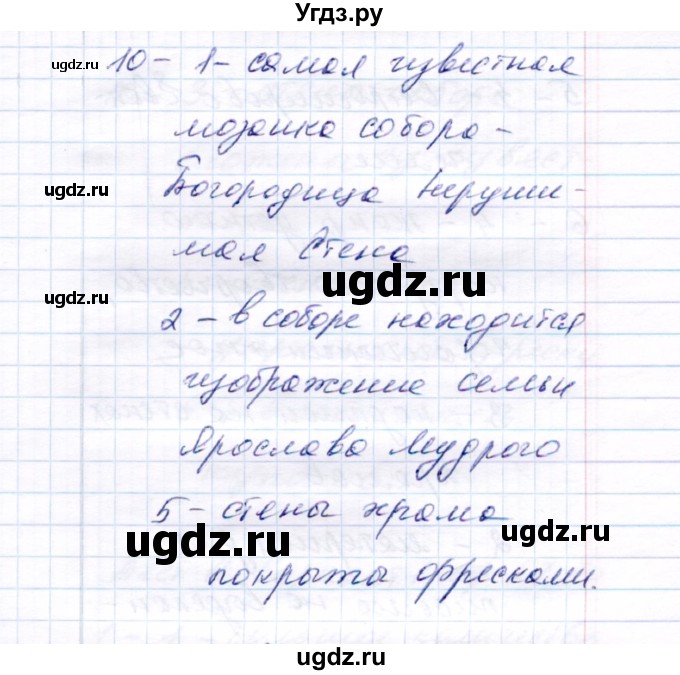 Угдз.ру
ugdz.ru
10 - 1 - самая известная
мозаика собора -
ugdz.ru
Богородица Неруши-
мая Стена
ugdz.ru
ugdz.ru
2 - в соборе находится
изображение семьи
Ярослава Мудрого
5 - стены храма
ugdz.ru
ugdz.ru
покрыты фресками.
ugdz.ru